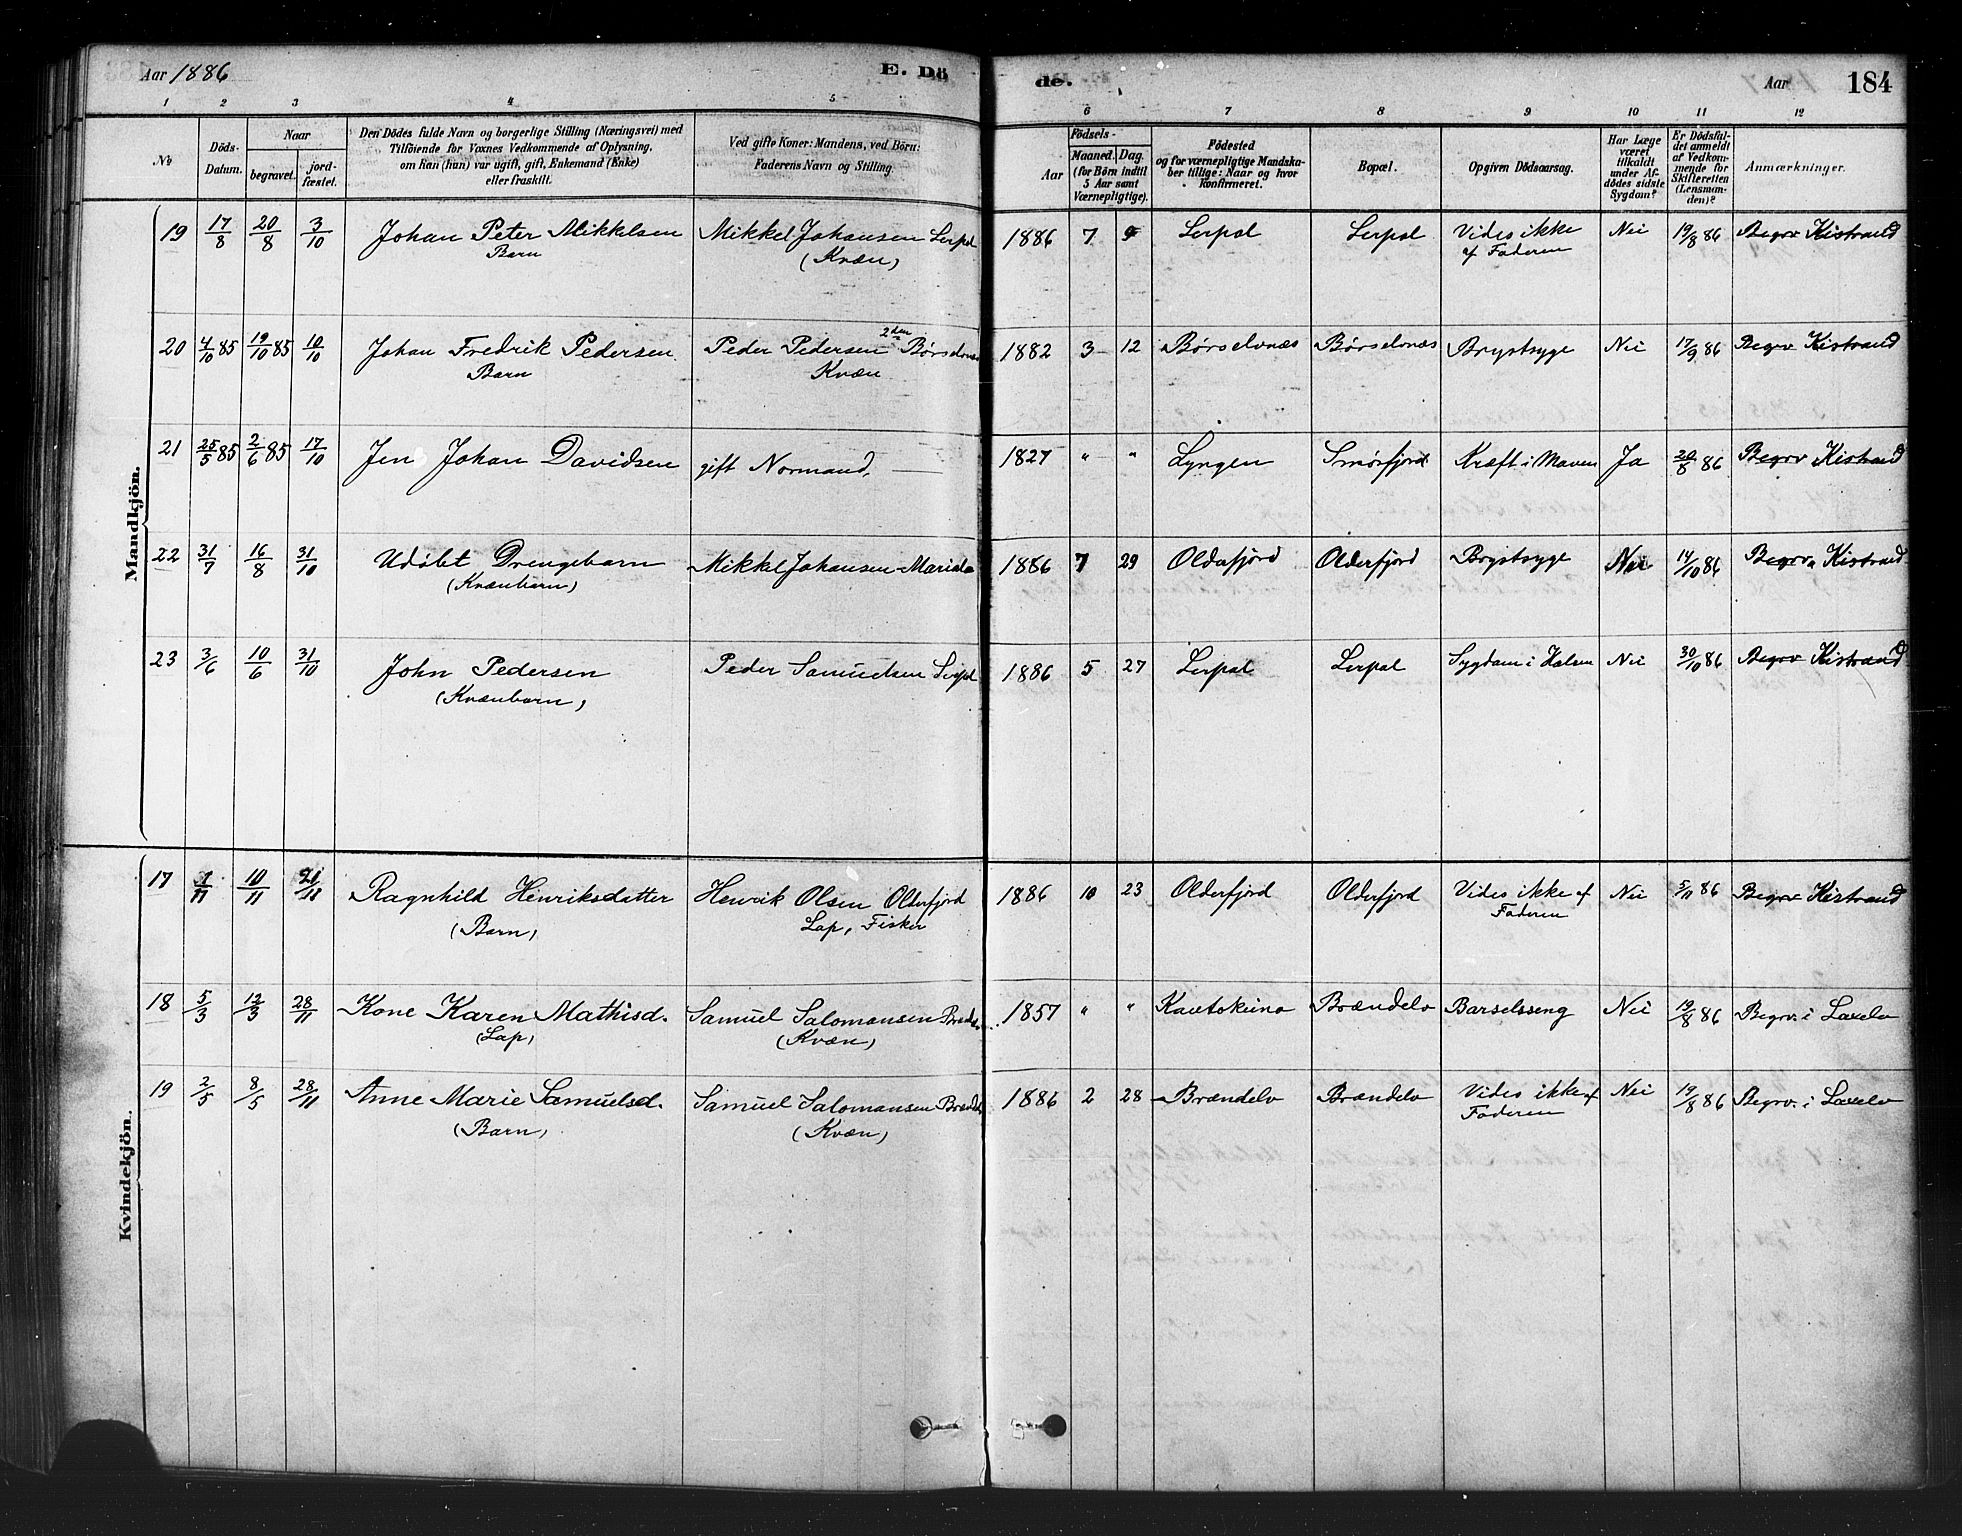 Aar 1886
E. Dö
de.
Aar
184
1 2 3 4 5 6 7 8 9 10 11 12
No
Döds-Datum.
Naar
begravet.
jord-fæstet.
Den Dödes fulde Navn og borgerlige Stilling (Næringsvei) med
Tilföiende for Voxnes Vedkommende af Oplysning,
om han (hun) var ugift, gift, Enkemand (Enke)
eller fraskilt.
Ved gifte Koner: Mandens, ved Börn:
Faderens Navn og Stilling.
Födsels-
Aar
Maaned. Dag.
(for Börn indtil
5 Aar samt
Værnepligtige).
Födested
og for værnepligtige Mandska-
ber tillige: Naar og hvor
Konfirmeret.
Bopæl.
Opgiven Dödsaarsag.
Har Læge
været
tilkaldt
under Af-
dödes sidste
Sygdom?
Er Dödsfal-
det anmeldt
af Vedkom-
mende for
Skifteretten
(Lensman-
den)?
Anmærkninger.
Mandkjön.
19 17/8 20/8 3/10 Johan Peter Mikkelsen Mikkel Johansen Lerpol 1886 7 9 Lerpol Lerpol Vides ikke Nei 19/8 86 Begrv Kistrand
Barn (Kvæn) af Faderen
20 4/10 85 19/10 85 10/10 Johan Fredrik Pedersen Peder Pedersen 2den Børselvnæs 1882 3 12 Børselvnæs Børselvnæs Brystsyge Nei 17/9 86 Begrv Kistrand
Barn Kvæn
21 25/5 85 2/6 85 17/10 Jen Johan Davidsen gift Normand, 1827 " " Lyngen Smörfjord Kræft i Maven Ja 20/8 86 Begrv Kistrand
22 31/7 16/8 31/10 Udöbt Drengebarn Mikkel Johansen 1886 7 29 Oldafjörd Olderfjord Brystsyge Nei 14/10 86 Begrv Kistrand
(Kvænbarn)
23 3/6 10/6 31/10 John Pedersen Peder Samuelsen Lerpol 1886 5 27 Lerpol Lerpol Sygdam i Halsen Nei 30/10 86 Begrv Kistrand
(Kvænbarn)
Kvindekjön.
17 10/11 21/11 Ragnhild Henriksdatter Henrik Olsen Olderfjord 1886 10 23 Olderfjord Olderfjord Vides ikke af Nei 5/11 86 Begrv Kistrand
(Barn) Lap, Fisker Faderen
18 5/3 12/3 28/11 Kone Karen Mathisd. Samuel Salomansen 1857 " " Kautokeino Brændelv Barselsseng Nei 19/8 86 Begrv. i Laxelv
(Lap) (Kvæn)
19 2/5 8/5 28/11 Anne Marie Samuelsd. Samuel Salomansen 1886 2 28 Brændelv Brændelv Vides ikke af Nei 19/8 86 Begrv. i Laxelv
(Barn) (Kvæn) Faderen